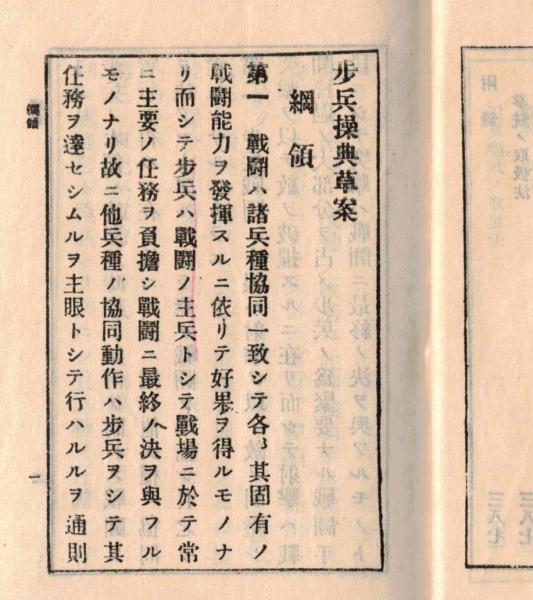 步兵操典草案
綱領
第一 戰鬪ハ諸兵種協同一致シテ各〻其固有ノ
戰鬪能力ヲ發揮スルニ依リテ好果ヲ得ルモノナ
リ而シテ步兵ハ戰鬪ノ主兵トシテ戰場ニ於テ常
ニ主要ノ任務ヲ負擔シ戰鬪ニ最終ノ決ヲ與フル
モノナリ故ニ他兵種ノ協同動作ハ步兵ヲシテ其
任務ヲ達セシムルヲ主眼トシテ行ハルルヲ通則
綱領
一